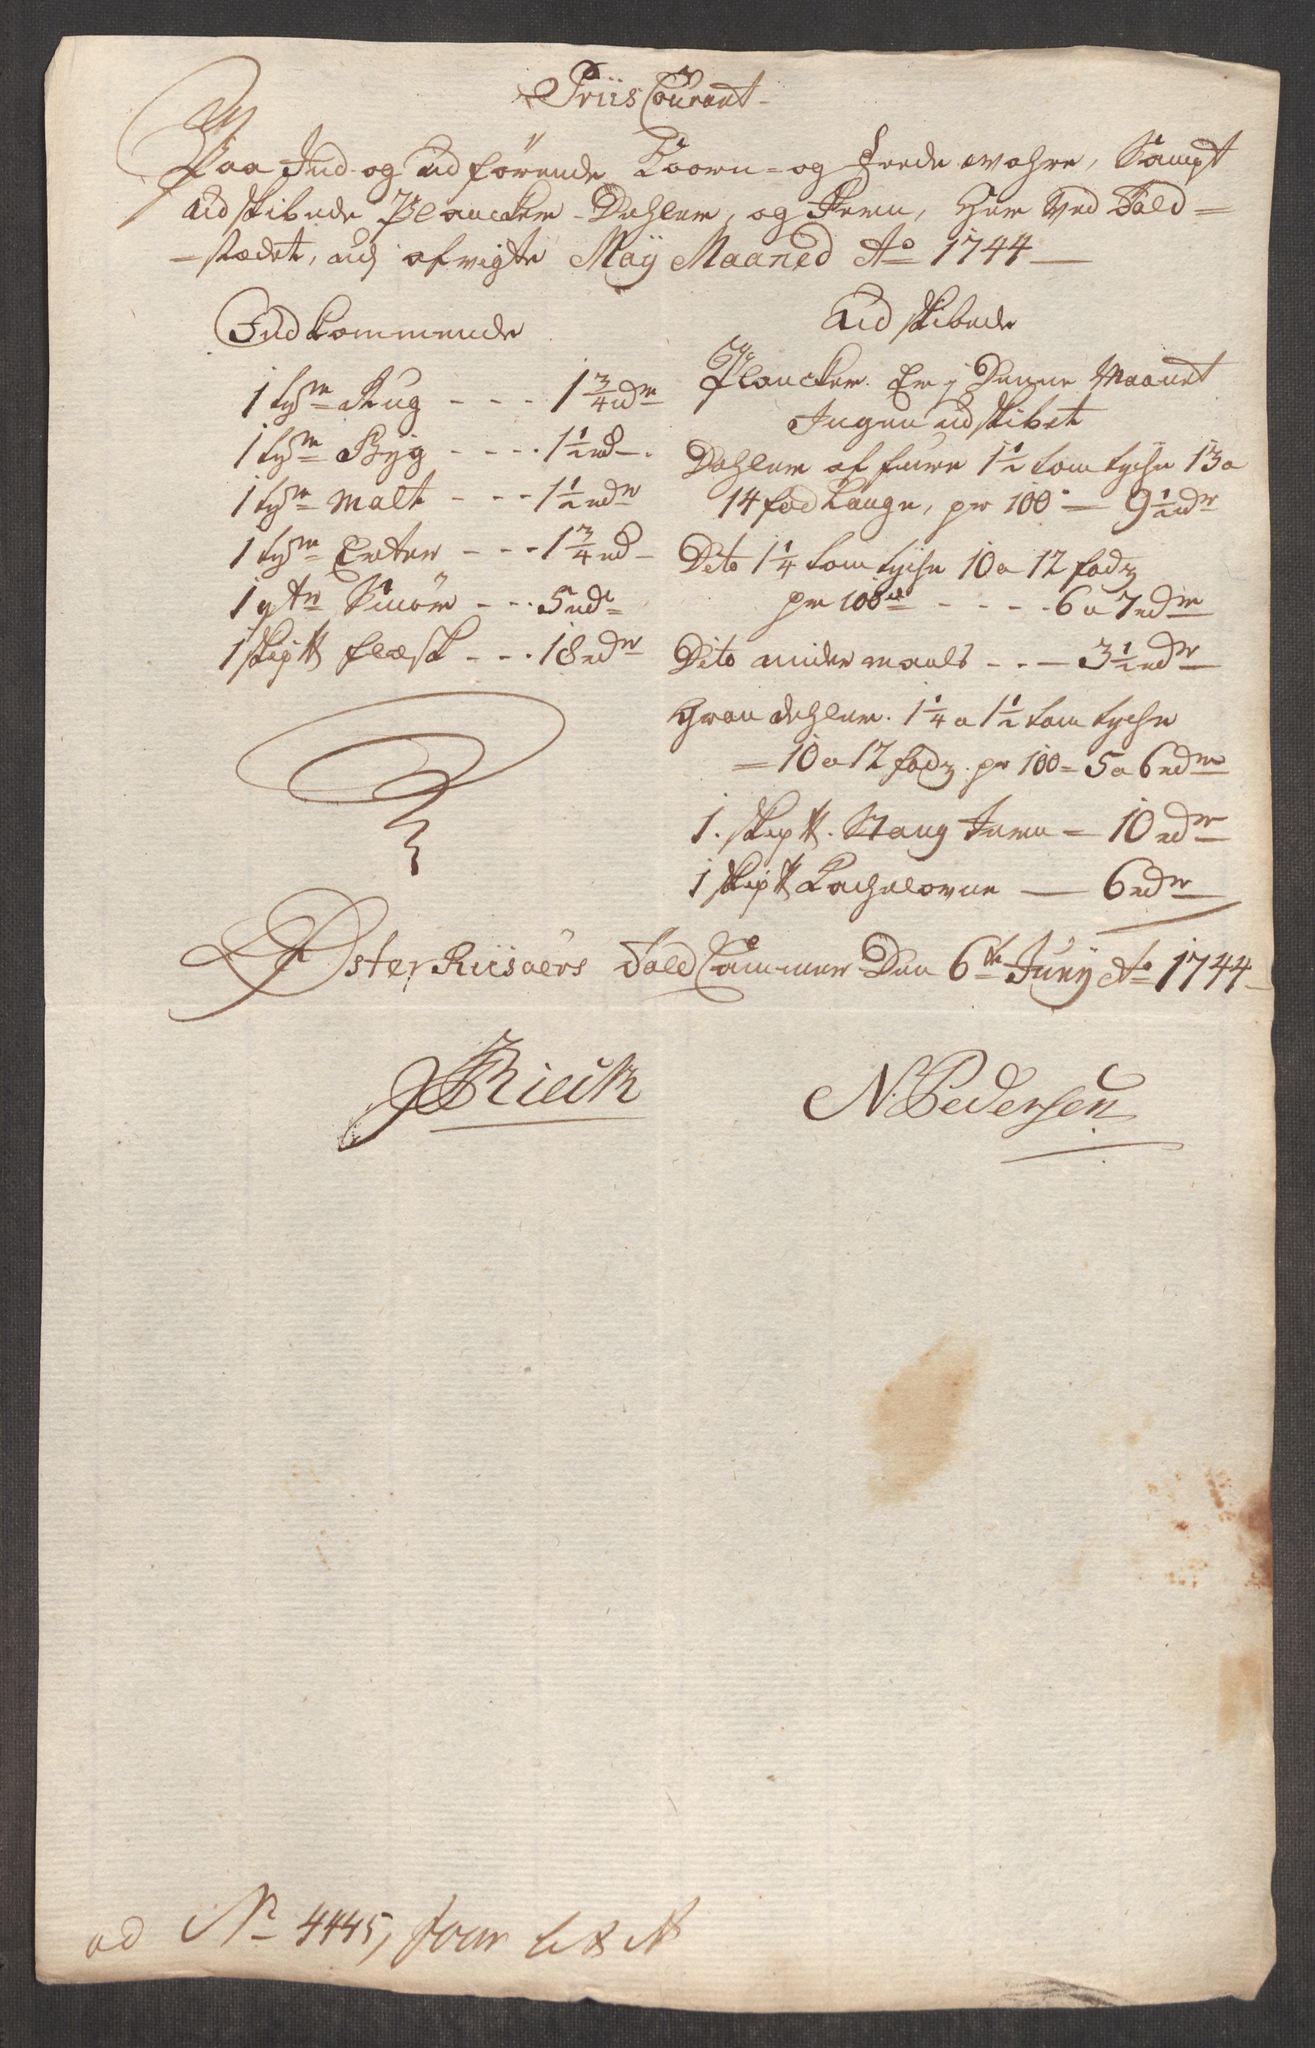 Priis Courant
Paa Ind og udførende Koorn- og Feede wahre, Sampt
udskibede Plancker Dehler, og Jern, her ved Told-
-stædet, udj afvigte Maÿ Maaned Ao 1744
Indkommende
1 tøn Rug - - - 1 3/4 rdr
1 tøn Byg - - - - 1 1/2 rd
1 tøn Malt - - - 1 1/2 rdr
1 tøn Erter - - - 1 3/4 rd
1 qtr Smør - - 5 rdr
1 skip℔ flæsk - - - 18 rdr
Udskibede
Plancker. Er j Denne Maanet
Ingen udskibet
Dehler af furre 1 1/2 tom tyche 13 a
14 fod Lange, pr 100 — 9 1/2 rdr
Dito 1 1/4 tom tyche 10 a 12 fods
pr 100de - - - - - 6 a 7 rdr
Dito under maals - - — 3 1/2 rdr
Gran dehler. 1 1/4 a 1 1/2 tom tyche
= 10 a 12 fods. pr 100 = 5 a 6 rdr
1. skip℔. Stang Jern = 10 rdr
1 skip℔ Kachelovne — 6 rdr
Øster Riisøers Told Cammer Den 6te Junij Ao 1744
N. Pedersen
ad No 4445,